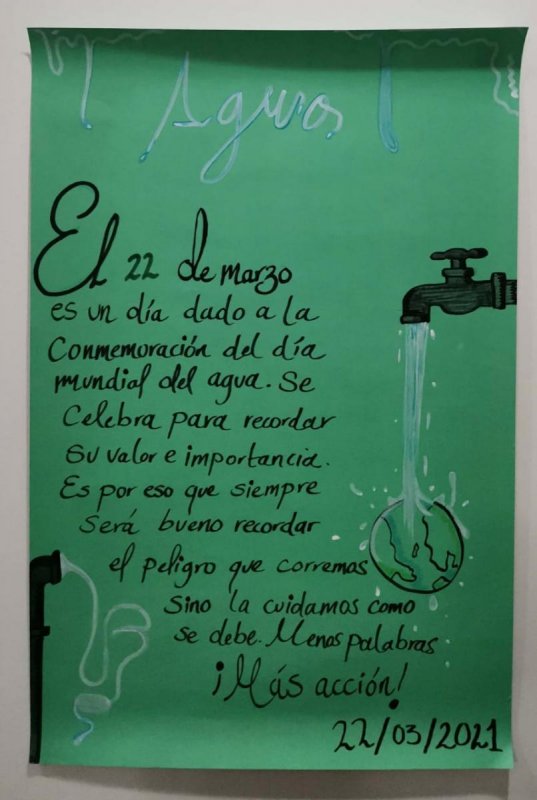 Aguas
El 22 de marzo
es un día dado a la
Conmemoración del día
mundial del agua. Se
Celebra para recordar
su valor e importancia.
Es por eso que siempre
será bueno recordar
el peligro que corremos
sino la cuidamos como
se debe. Menos palabras
¡Más acción!
22/03/2021